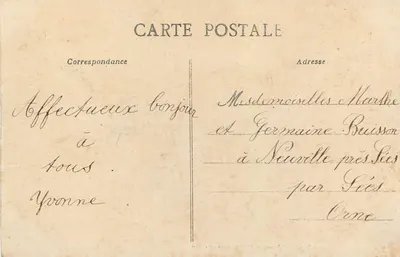 CARTE POSTALE
Correspondance
Adresse
Affectueux bonjour
à
tous.
Yvonne.
Mesdemoiselles Marthe
et Germaine Buisson
à Neuville près Sées
par Sées
Orne